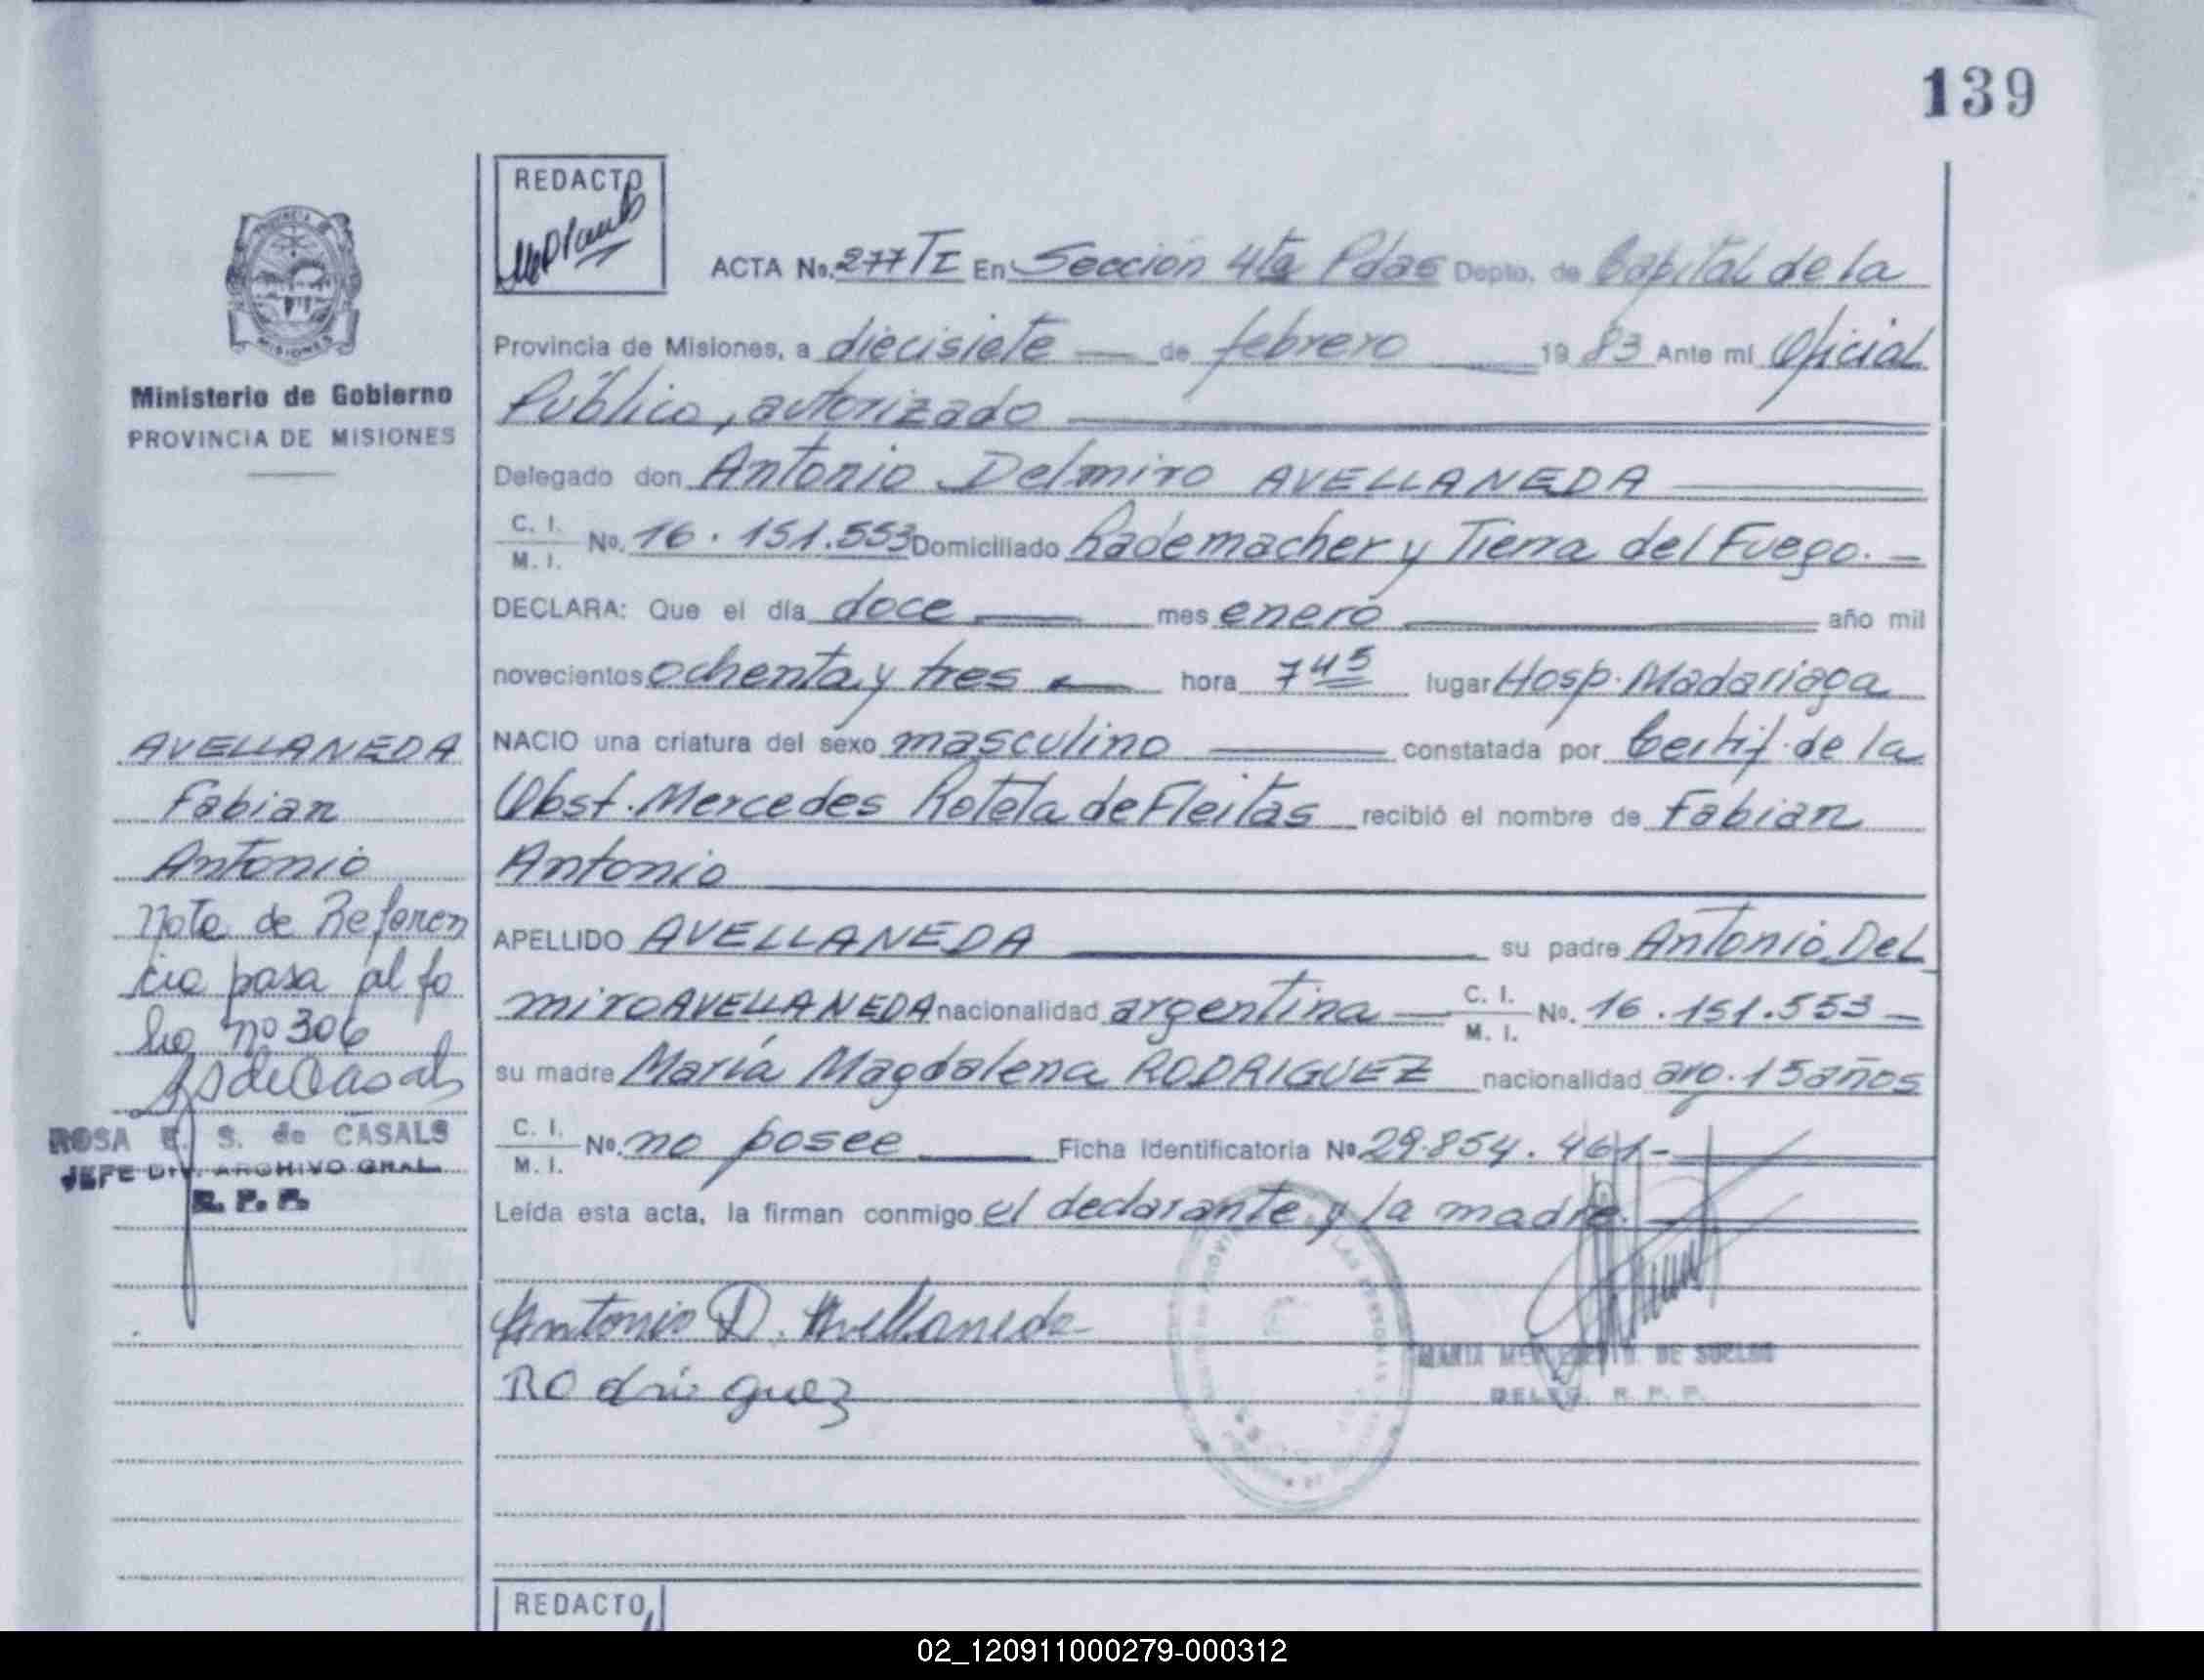 139
REDACTO
ACTA No. 277 TI En Sección 4ta Pdas Depto. de Capital de la
Provincia de Misiones, a diecisiete de febrero 1983 Ante mí Oficial
Público, autorizado
Delegado don Antonio Delmiro AVELLANEDA
C. I. M. I. No. 16.151.553 Domiciliado Rademacher y Tierra del Fuego.
DECLARA: Que el día doce mes enero año mil
novecientos ochenta y tres hora 7 45 lugar Hosp. Madariaga
NACIO una criatura del sexo masculino constatada por Certif. de la
Obst. Mercedes Rotela de Fleitas recibió el nombre de Fabian
Antonio
APELLIDO AVELLANEDA su padre Antonio Del
miro AVELLANEDA nacionalidad argentina C. I. M. I. No. 16.151.553
su madre María Magdalena RODRIGUEZ nacionalidad arg. 15 años
C. I. M. I. No. no posee Ficha Identificatoria No 29.854.461-
Leída esta acta, la firman conmigo el declarante y la madre.
Antonio D. Avellaneda
ROdriguez
DE SUELDO
DELEG. R. P. P.
MISIONES
Ministerio de Gobierno
PROVINCIA DE MISIONES
AVELLANEDA
Fabian
Antonio
Nota de Referen
cia pasa al fo
lio nº 306
SdeCasals
ROSA E. S. de CASALS
JEFE DIV. ARCHIVO GRAL
R. P. P.
REDACTO
02_120911000279-000312